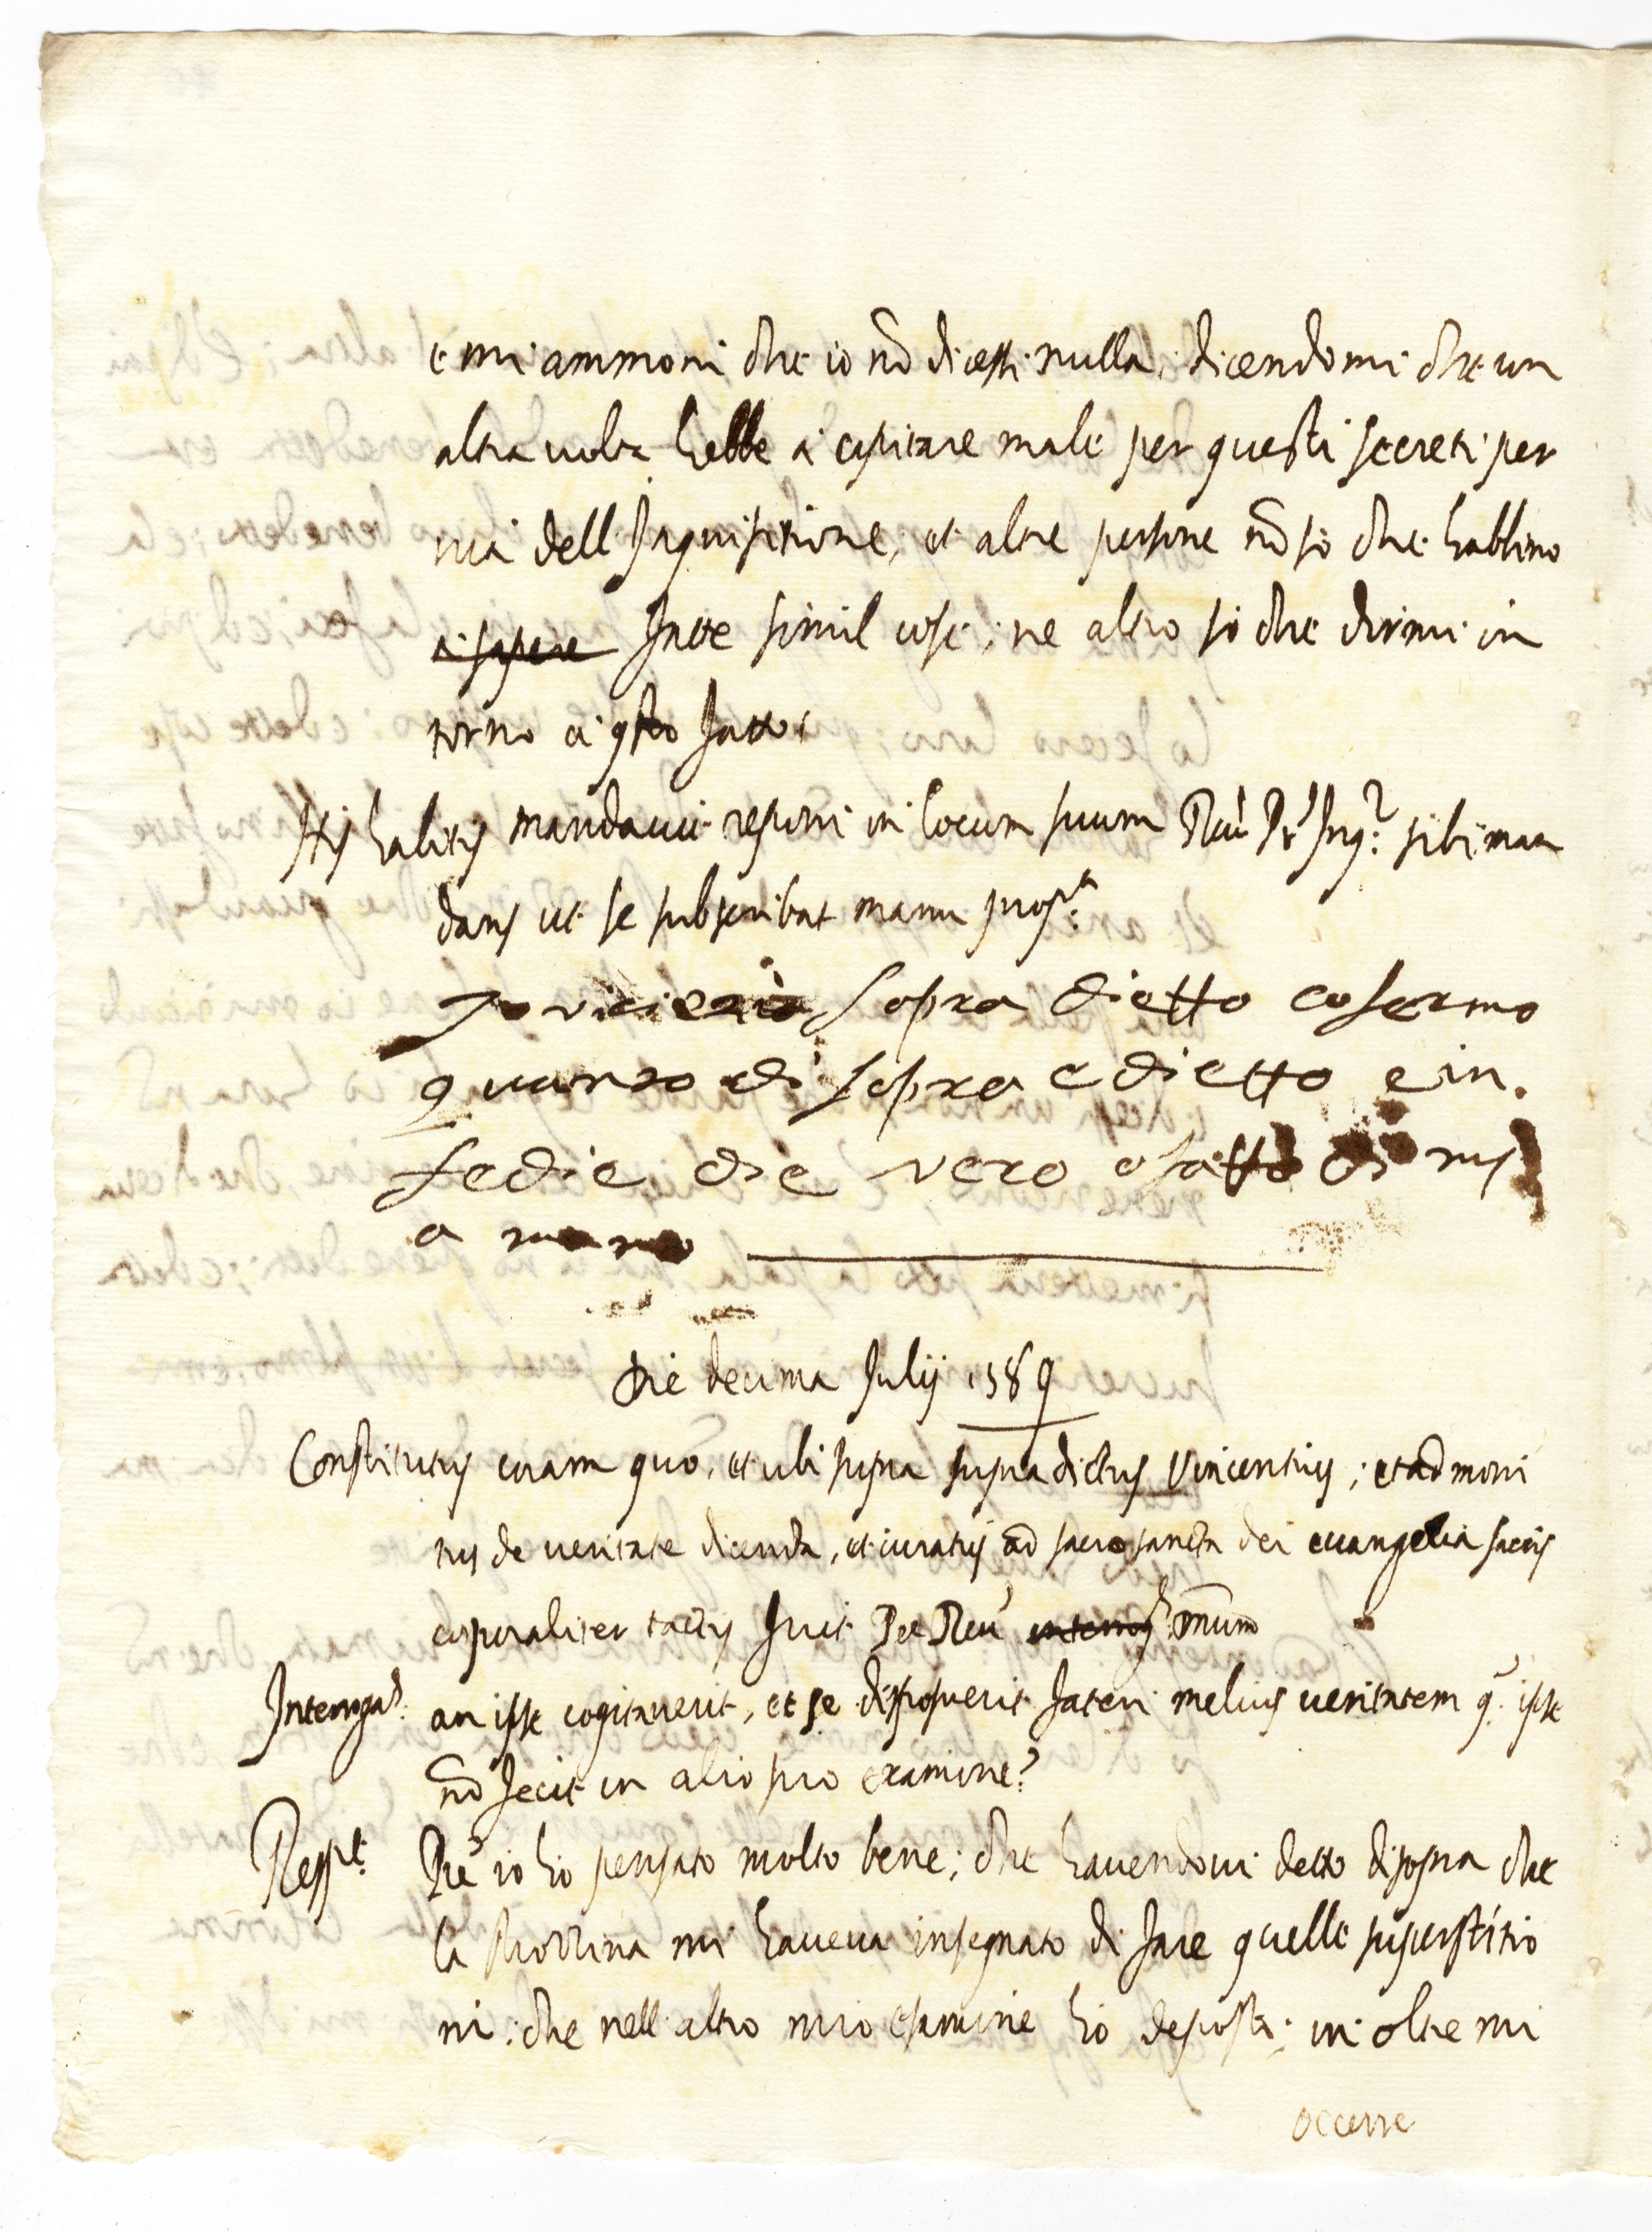 e mi ammoni che io nõ dicessi nulla, dicendomi che un
altra volta hebbe à capitare male per questi secreti per
via dell Inquisitione, et altre persone nõ sò che habbino
à sapere fatte simil cose; ne altro sò che dirmi in
torno à q̃sto fatto.
His habitis mandavit reponi in locum suum Reu. Pr. Inq.r sibi man
dans ut se subscribat manu prop.a
Io sopra dietto cofermo
quanto di sopra e dietto e in
fedie die vero o fatto di mi
a mano
Die decima Julij 1589
Constitutus coram quo, et ubi supra supradictus Vincentius; et admoni
tus de veritate dicenda, et iuratus ad sacrosancta dei evangelia sacris
corporaliter tactis fuit Per Reu. interrog.
Interrogat. an ipse cogitaverit, et se disposuerit fateri melius veritatem q̃. ipse
nõ fecit in alio suo examine?
Resp.t Pre io hò pensato molto bene; che havendovi detto disopra che
la mi haveva insegnato di fare quelle superstitio
ni; che nell altro mio esamine hò deposto; in oltre mi
occorre